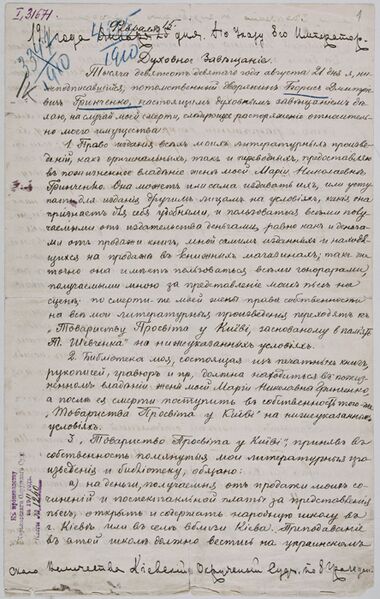 I, 31671
1
Духовное Завѣщаніе.
Тысяча девятьсотъ девятаго года августа 21 дня я, ни-
жеподписавшійся, потомственный дворянинъ Борисъ Дмитрі-
евичъ Гринченко, настоящимъ духовнымъ завѣщаніемъ дѣ-
лаю, на случай моей смерти, слѣдующее распоряженіе относитель-
но моего имущества:
1. Право изданія всѣхъ моихъ литературныхъ произве-
деній, какъ оригинальныхъ, такъ и переводныхъ, предоставляю
въ пожизненное владѣніе женѣ моей Маріи Николаевнѣ
Гринченко. Она можетъ или сама издавать ихъ, или усту-
пать для изданія другимъ лицамъ на условіяхъ, какія она
признаетъ для себя удобными, и пользоваться всѣми полу-
чаемыми отъ издательства деньгами, равно какъ и деньга-
ми отъ продажи книгъ, мной самимъ изданныхъ и находя-
щихся на продажѣ въ книжныхъ магазинахъ; такъ же
точно она имѣетъ пользоваться всѣми гонорарами,
получаемыми мною за представленіе моихъ пьесъ на
сценѣ; по смерти же моей жены право собственности
на всѣ мои литературныя произведенія переходитъ къ
„Товариству Просвіта у Київі", заснованому в память
Т. Шевченка" на нижеуказанныхъ условіяхъ.
2. Библіотека моя, состоящая изъ печатныхъ книгъ,
рукописей, гравюръ и пр., должна находиться въ пожиз-
ненномъ владѣніи жены моей Маріи Николаевны Гринченко,
а послѣ ея смерти поступить въ собственность того же
„Товариства Просвіта у Київі" на нижеуказанныхъ
условіяхъ.
3. „Товариство Просвіта у Київі", принявъ въ
собственность помянутыя мои литературныя про-
изведенія и библіотеку, обязано:
а) на деньги, получаемыя отъ продажи моихъ со-
чиненій и поспектакльной платы за представленія
пьесъ, открыть и содержать народную школу въ
г. Кіевѣ или въ селѣ вблизи Кіева. Преподаваніе
въ этой школѣ должно вестись на украинскомъ
скаго Величества Кіевскій Окружный Судъ, по